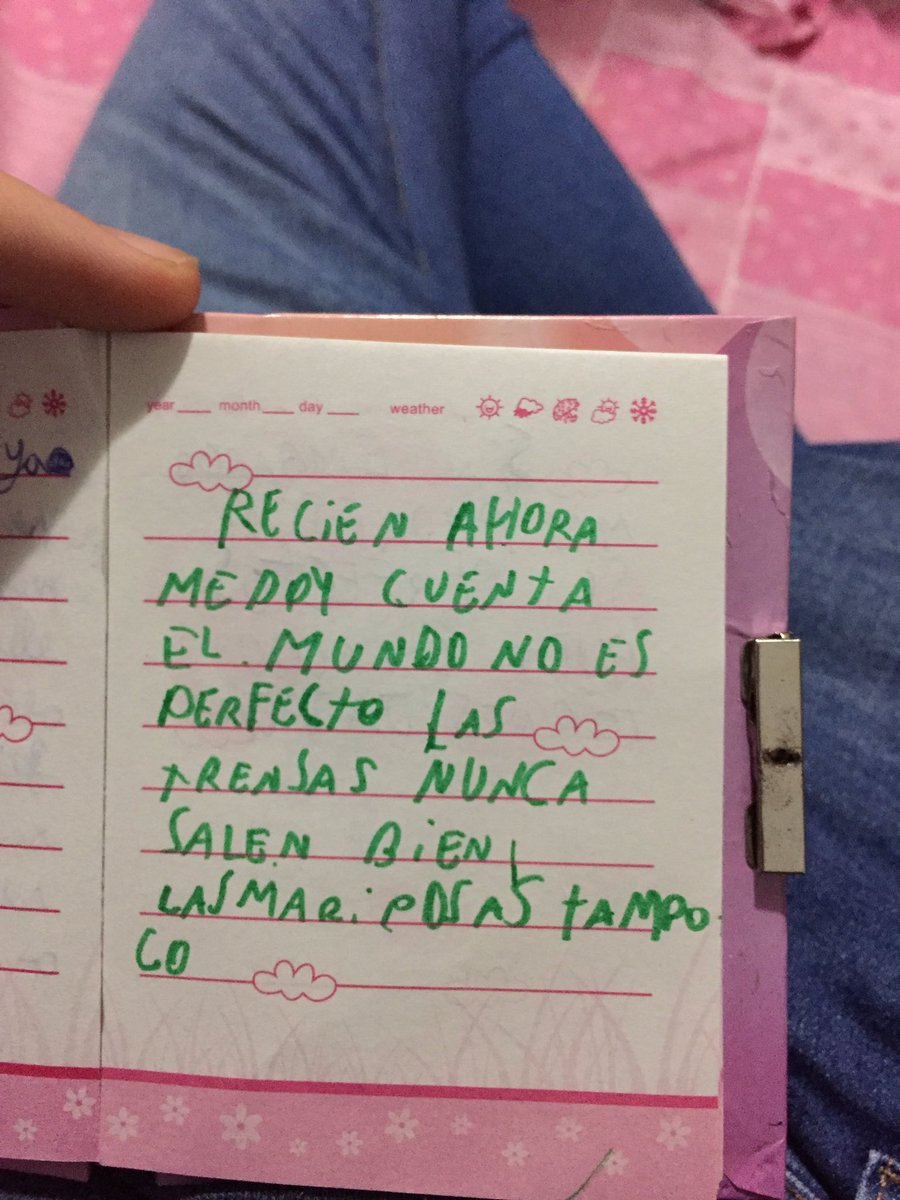 ya
year ___ month ___ day ___ weather
RECiEN AHORA
ME DOY CUENTA
EL MUNDO NO ES
PERFECTO LAS
tRENSAS NUNCA
SALEN BiEN,
LAS MARiPOSAS tAMPO
CO